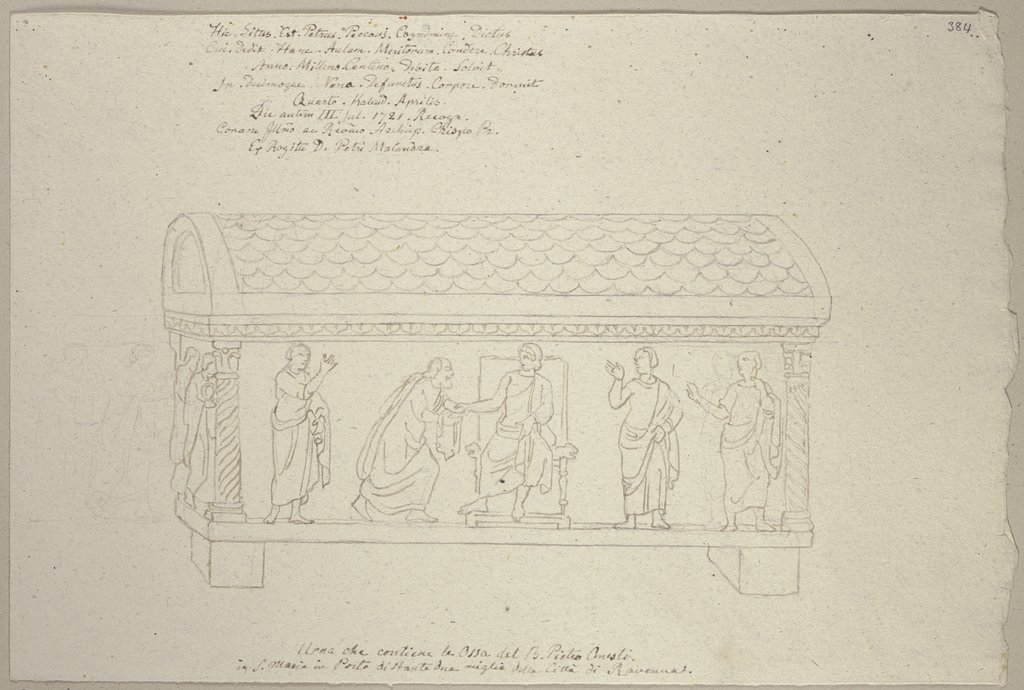 384
Hic. Situs. Est. Petrus. Peccans. Cognomine. Dictus
Cui. Dedit. Hanc. Aulam. Meritorum. Condere. Christus
Anno. Milleno. Centeno. Debita. Solvit.
In. Decimoque. Nono. Defunctus. Corpore. Dormit
Quarto. Kalend. Aprilis.
Die autem III Jul. 1721. Recogn.
Coram Illmo ac Revmo Archiep. Pr.
Ex Rogitu D. Petri
Urna che contiene le Ossa del B. Pietro Onesti.
in S. Maria in Porto distante due miglia dalla Città di Ravenna.